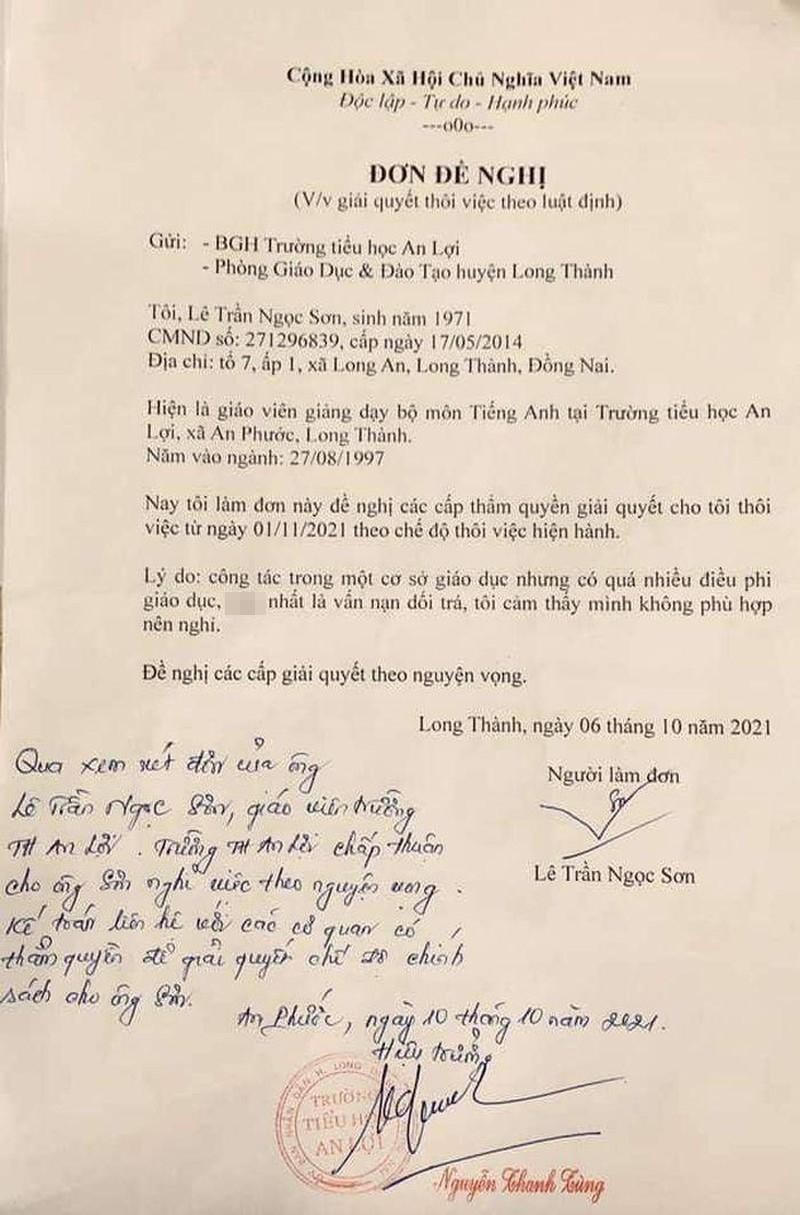 Cộng Hòa Xã Hội Chủ Nghĩa Việt Nam
Độc lập - Tự do - Hạnh phúc
---o0o---
ĐƠN ĐỀ NGHỊ
(V/v giải quyết thôi việc theo luật định)
Gửi: - BGH Trường tiểu học An Lợi
- Phòng Giáo Dục & Đào Tạo huyện Long Thành
Tôi, Lê Trần Ngọc Sơn, sinh năm 1971
CMND số: 271296839, cấp ngày 17/05/2014
Địa chỉ: tổ 7, ấp 1, xã Long An, Long Thành, Đồng Nai.
Hiện là giáo viên giảng dạy bộ môn Tiếng Anh tại Trường tiểu học An
Lợi, xã An Phước, Long Thành.
Năm vào ngành: 27/08/1997
Nay tôi làm đơn này đề nghị các cấp thẩm quyền giải quyết cho tôi thôi
việc từ ngày 01/11/2021 theo chế độ thôi việc hiện hành.
Lý do: công tác trong một cơ sở giáo dục nhưng có quá nhiều điều phi
giáo dục, nhất là vấn nạn dối trá, tôi cảm thấy mình không phù hợp
nên nghỉ.
Đề nghị các cấp giải quyết theo nguyện vọng.
Long Thành, ngày 06 tháng 10 năm 2021
Người làm đơn
Lê Trần Ngọc Sơn
Qua xem xét đơn của ông
Lê Trần Ngọc Sơn, giáo viên trường
TH An Lợi. Trường TH An Lợi chấp thuận
cho ông Sơn nghỉ việc theo nguyện vọng.
Kế toán liên hệ với các cơ quan có
thẩm quyền để giải quyết chế độ chính
sách cho ông Sơn.
An Phước, ngày 10 tháng 10 năm 2021.
Hiệu trưởng
TRƯỜNG
TIỂU HỌC
AN LỢI
Nguyễn Thanh Tùng